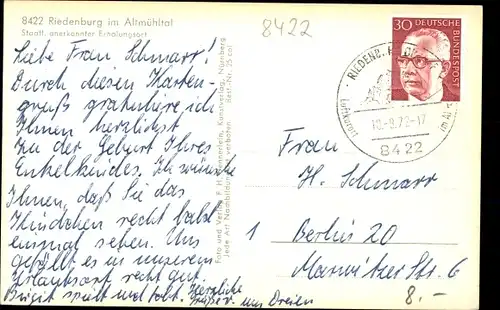 8422 Riedenburg im Altmühltal
Staatl. anerkannter Erholungsort
8422
Liebe Frau Schmarr!
Durch diesen Karten-
gruß gratuliere ich
Ihnen herzlichst
zu der Geburt Ihres
Enkelkindes. Ich wünsche
Ihnen, daß Sie das
Kindchen recht bald
einmal sehen. Uns
gefällt es in unserem
Urlaubsort recht gut.
Birgit spielt und tobt. Herzliche
Grüße von uns Dreien
Foto und Verlag Kunstverlag, Nürnberg
Jede Art Nachbildung verboten Best.-Nr. 25 col
30 DEUTSCHE
BUNDESPOST
RIEDENB
-9.72-17
8422
Frau
H. Schmarr
1 Berlin 20
Marwitzer Str. 6
8.-